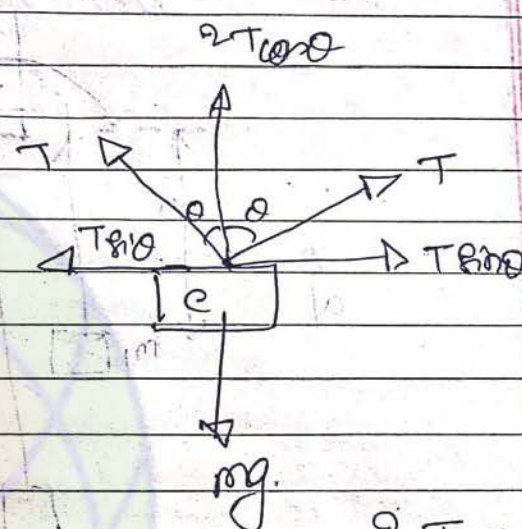 2Tcosθ
T
T
θ θ
Tsinθ
Tsinθ
C
mg.